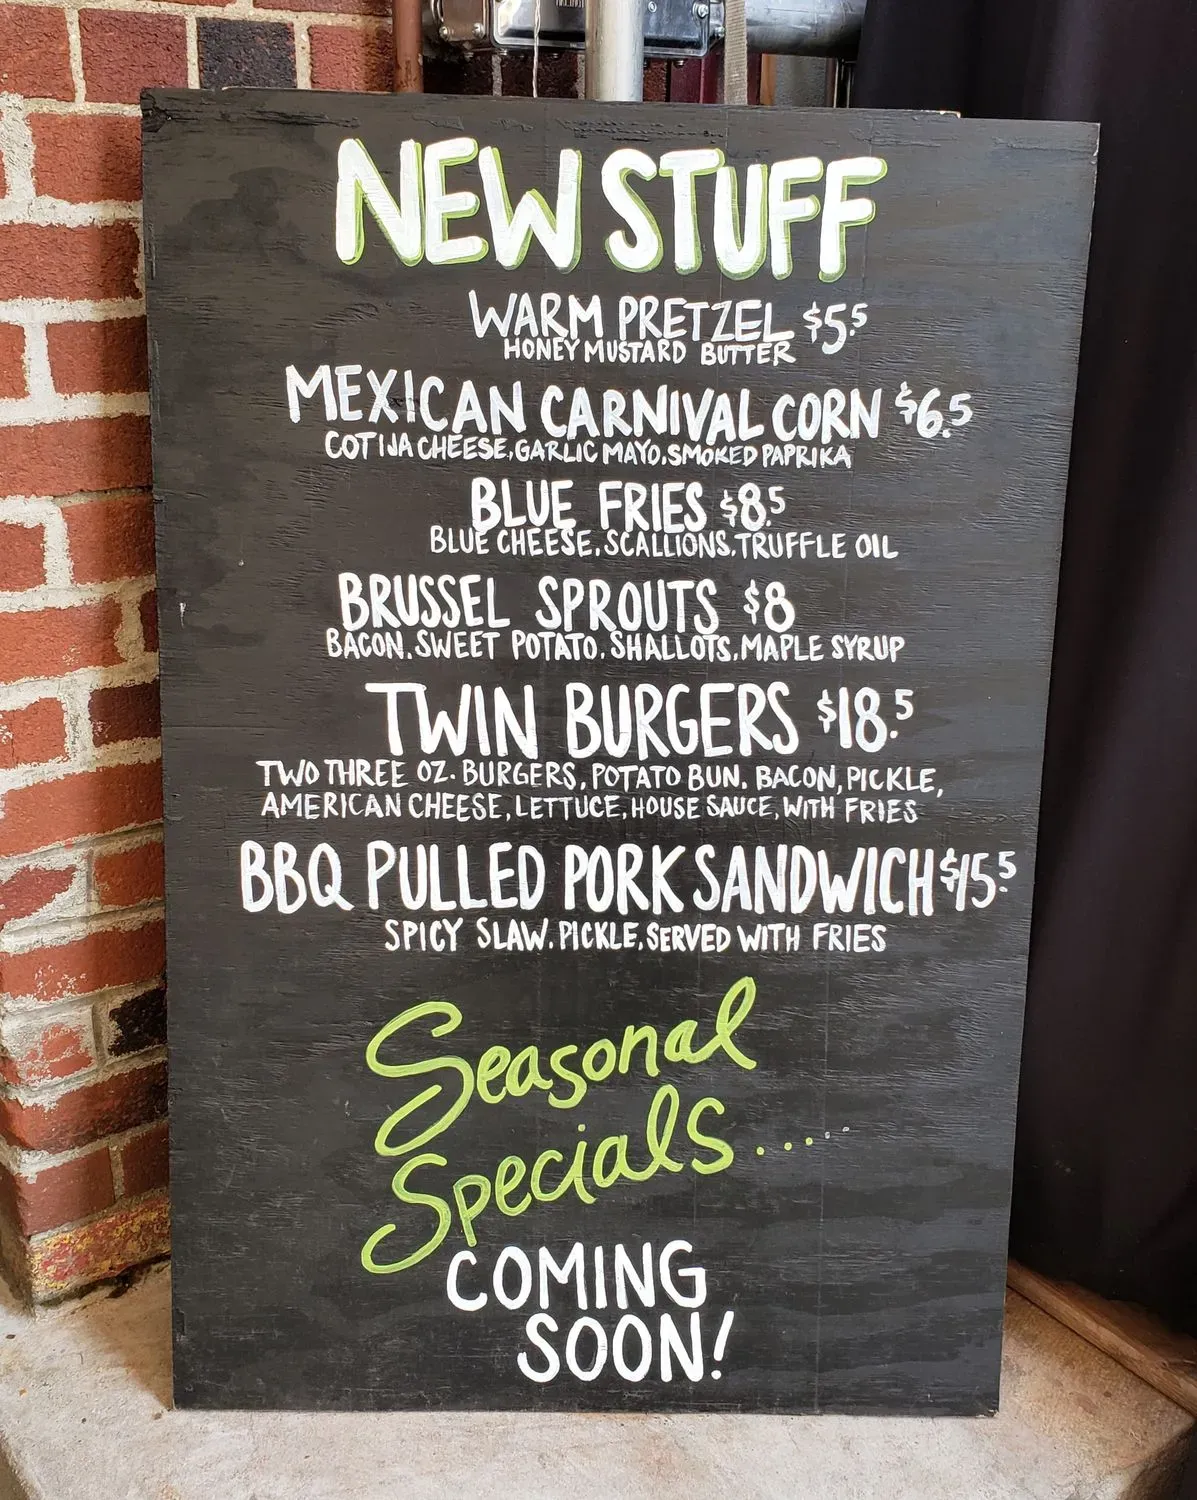 NEW STUFF
WARM PRETZEL $5.5
HONEY MUSTARD BUTTER
MEXICAN CARNIVAL CORN $6.5
COTIJA CHEESE, GARLIC MAYO, SMOKED PAPRIKA
BLUE FRIES $8.5
BLUE CHEESE, SCALLIONS, TRUFFLE OIL
BRUSSEL SPROUTS $8
BACON, SWEET POTATO, SHALLOTS, MAPLE SYRUP
TWIN BURGERS $18.5
TWO THREE OZ. BURGERS, POTATO BUN, BACON, PICKLE,
AMERICAN CHEESE, LETTUCE, HOUSE SAUCE, WITH FRIES
BBQ PULLED PORK SANDWICH $15.5
SPICY SLAW, PICKLE, SERVED WITH FRIES
Seasonal
Specials.....
COMING
SOON!